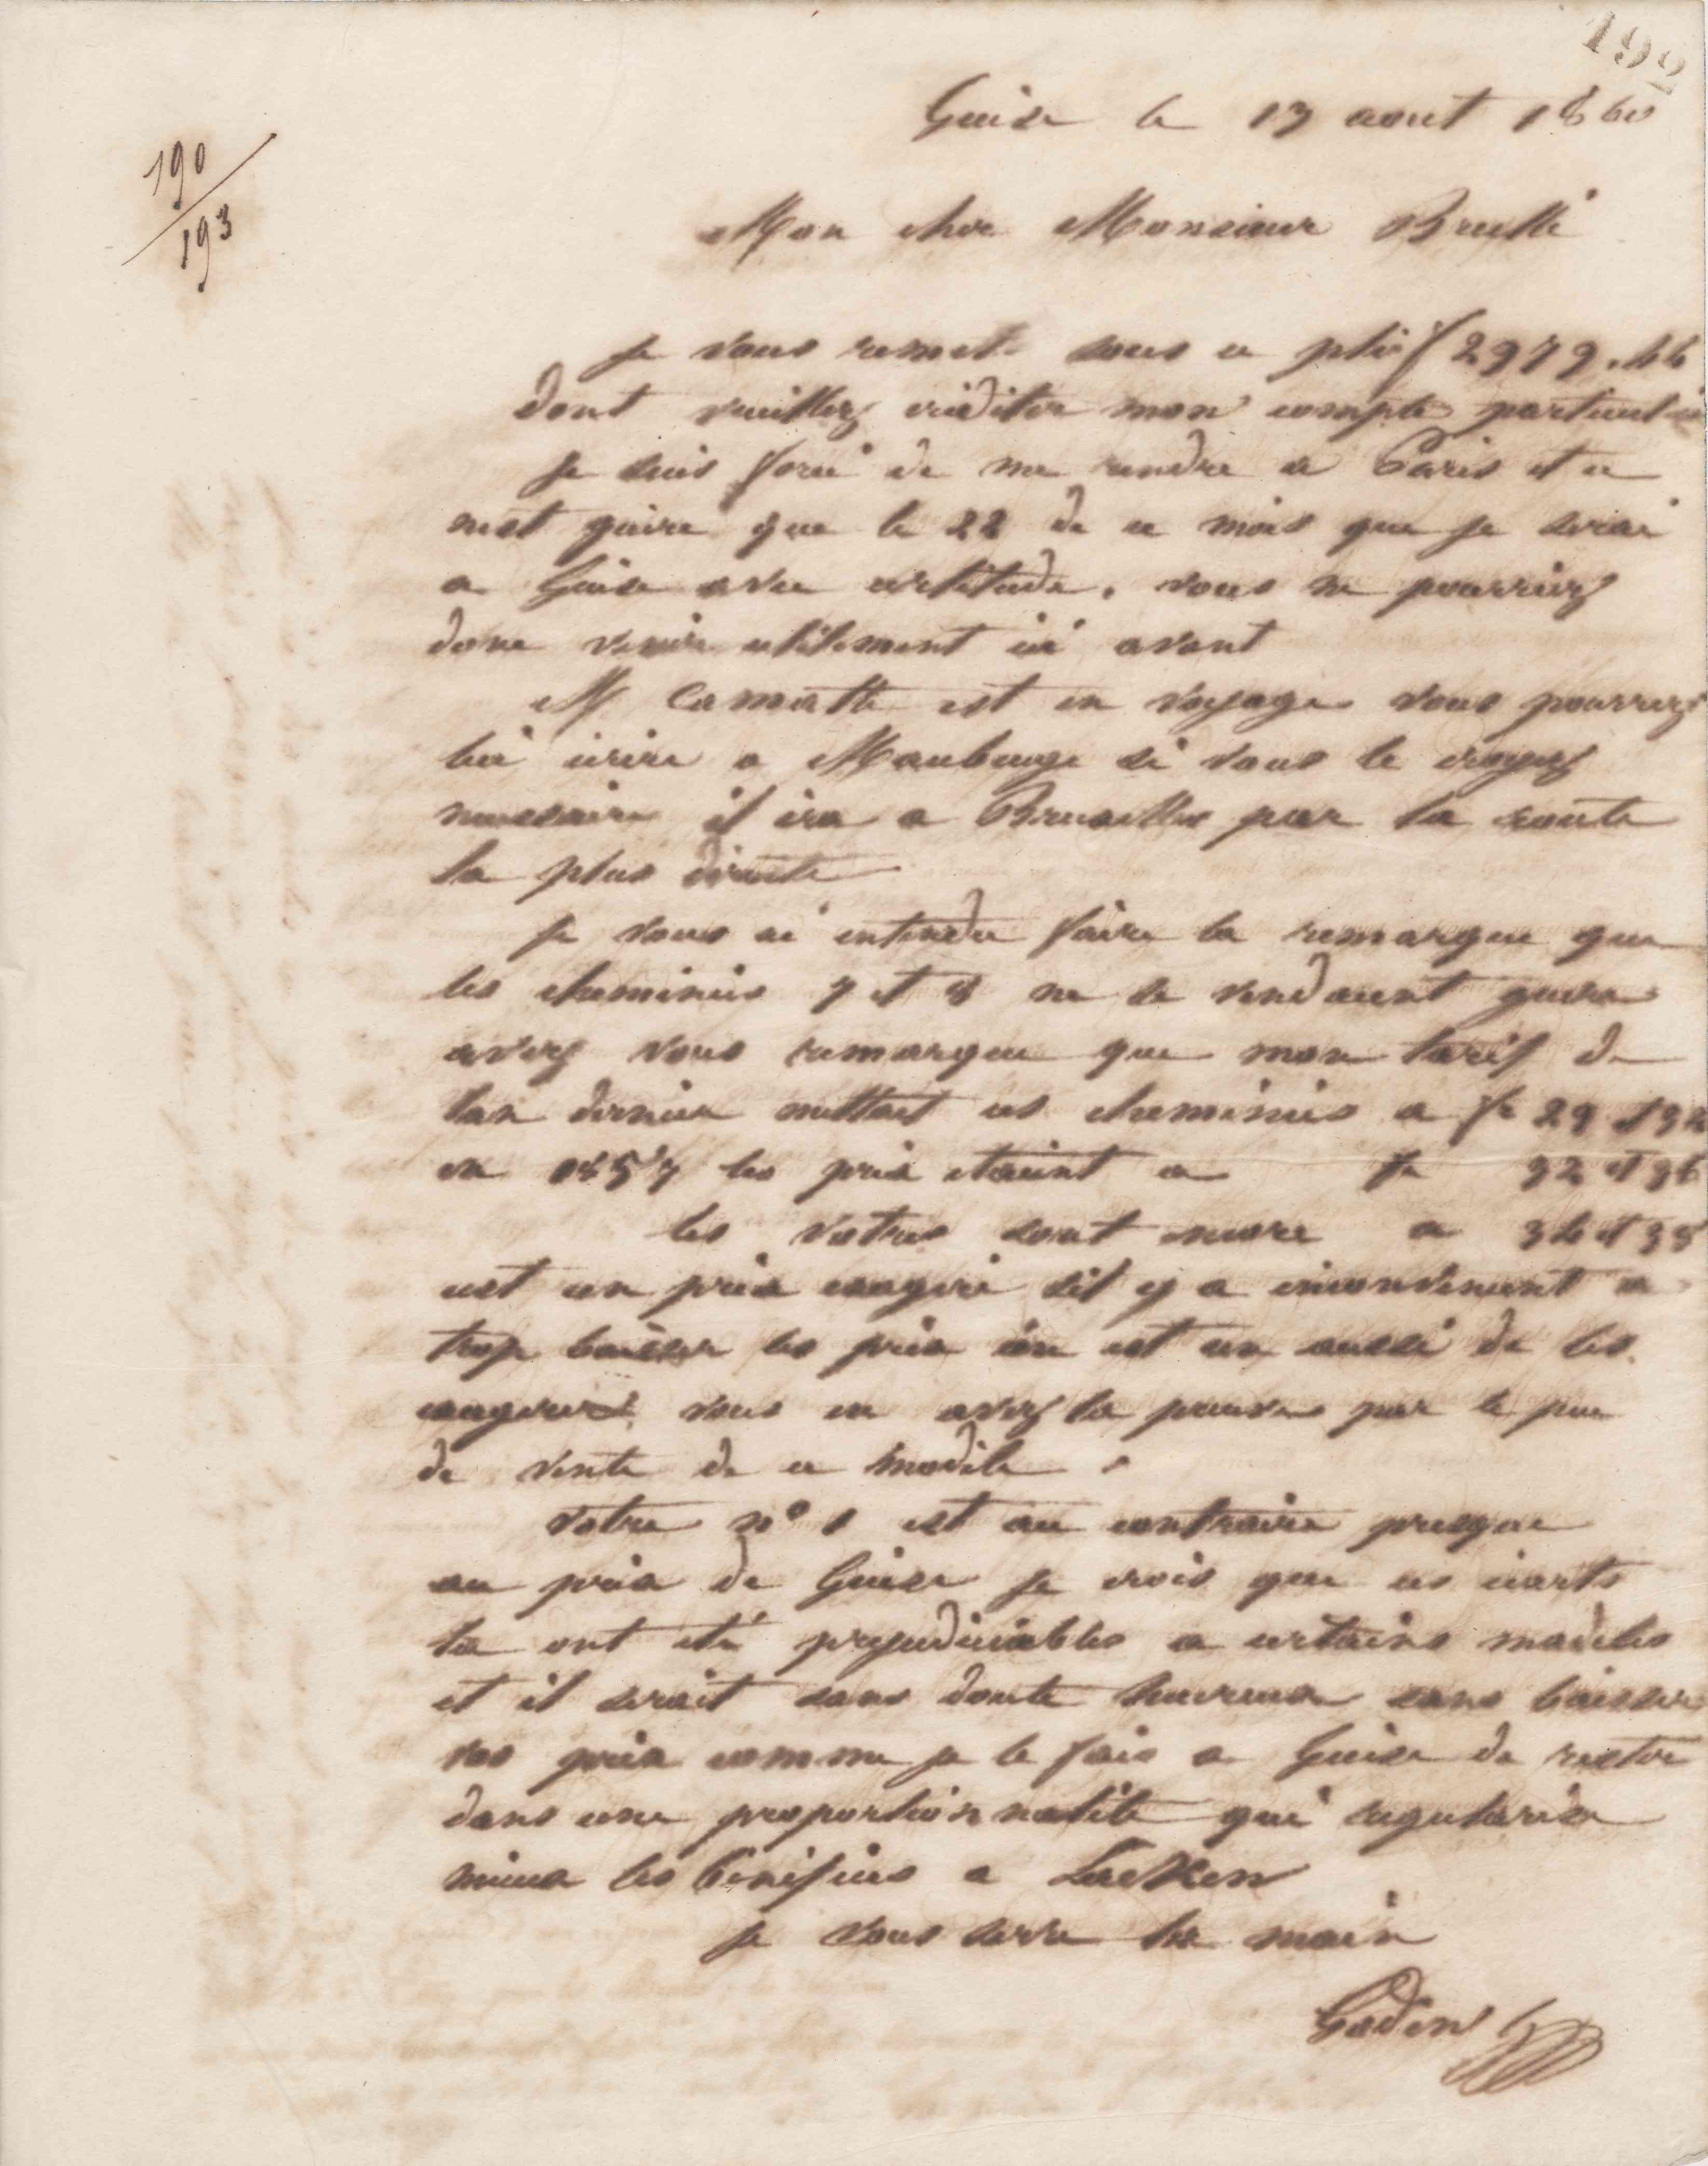 192
190
193
Guise le 13 aout 1860
Mon cher Monsieur Brullé
Je vous remet sous ce pli f 2979.46
dont veuillez créditer mon compte particul
Je suis forcé de me rendre a Paris et ce
nest guère que le 22 de ce mois que je serai
a Guise avec certitude. vous ne pourriez
donc venir utilement ici avant
M Camatte est en voyage vous pourrez
lui écrire a Maubeuge si vous le croyez
necessaire il ira a Bruxelles par la route
la plus directe
Je vous ai entendu faire la remarque que
les cheminées 7 et 8 ne se vendaient guere
avez vous remarque que mon tarif de
lan dernier mettait ces cheminées a fr 29
en 1857 les prix etaient a fr 32 et 36
les votres sont encore a et
cest un prix exagéré sil y a inconvenient a
trop baisser les prix il en est un aussi de les
exagerer vous en avez la preuve par le peu
de vente de ce modèle.
Votre n° 1 est au contraire presque
au prix de Guise je crois que ces écarts
la ont été prejudiciables a certains modèles
et il serait sans doute heureux sans baisser
vos prix comme je le fais a Guise de rester
dans une proportionnalité qui regularise
mieux les bénéfices a Laeken
Je vous serre la main
Godin